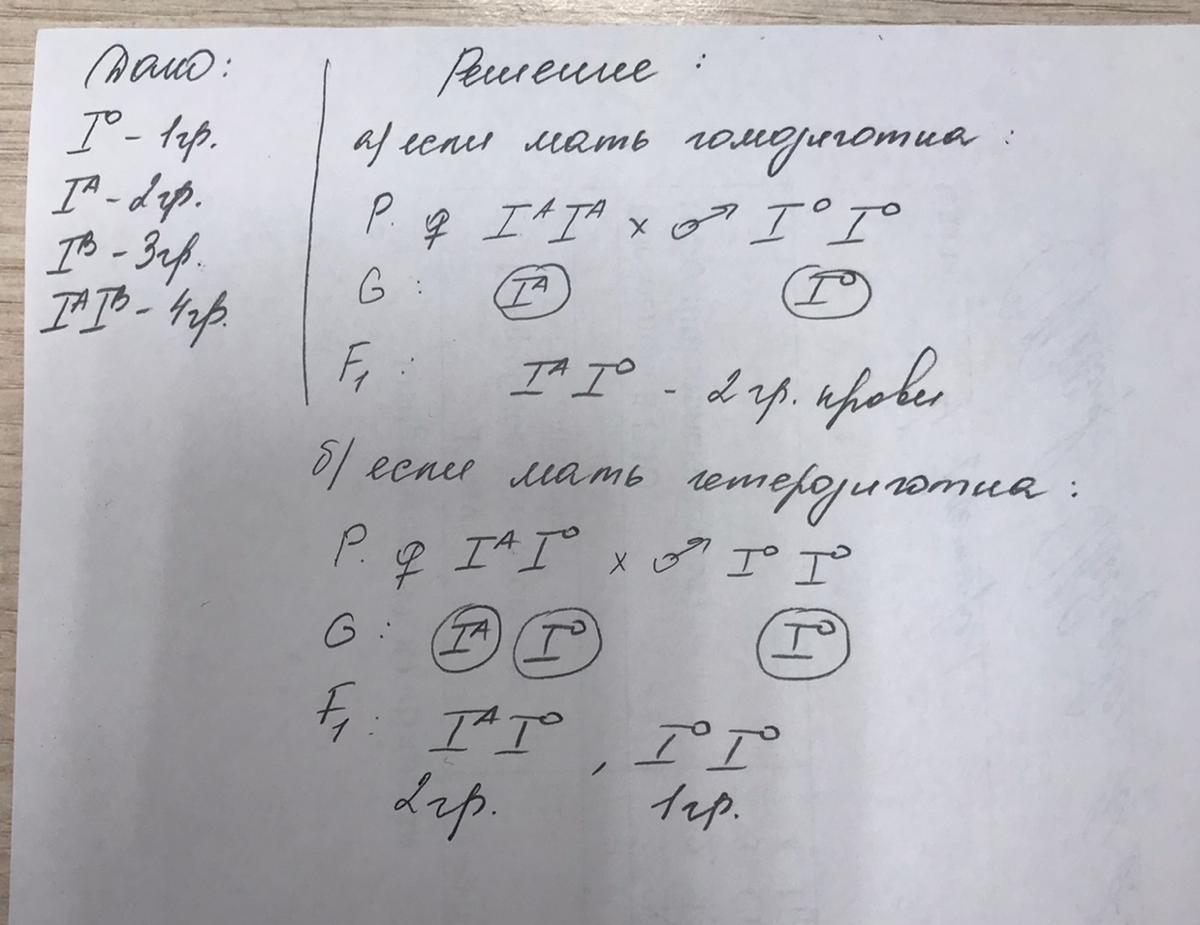 Дано:
I⁰ - 1гр.
Iᴬ - 2гр.
Iᴮ - 3гр.
IᴬIᴮ - 4гр.
Решение :
а) если мать гомозиготна :
P. ♀ IᴬIᴬ × ♂ I⁰ I⁰
G : Iᴬ I⁰
F₁ : Iᴬ I⁰ - 2 гр. крови
б) если мать гетерозиготна :
P. ♀ IᴬI⁰ × ♂ I⁰ I⁰
G : Iᴬ I⁰ I⁰
F₁ : IᴬI⁰ , I⁰I⁰
2гр. 1гр.